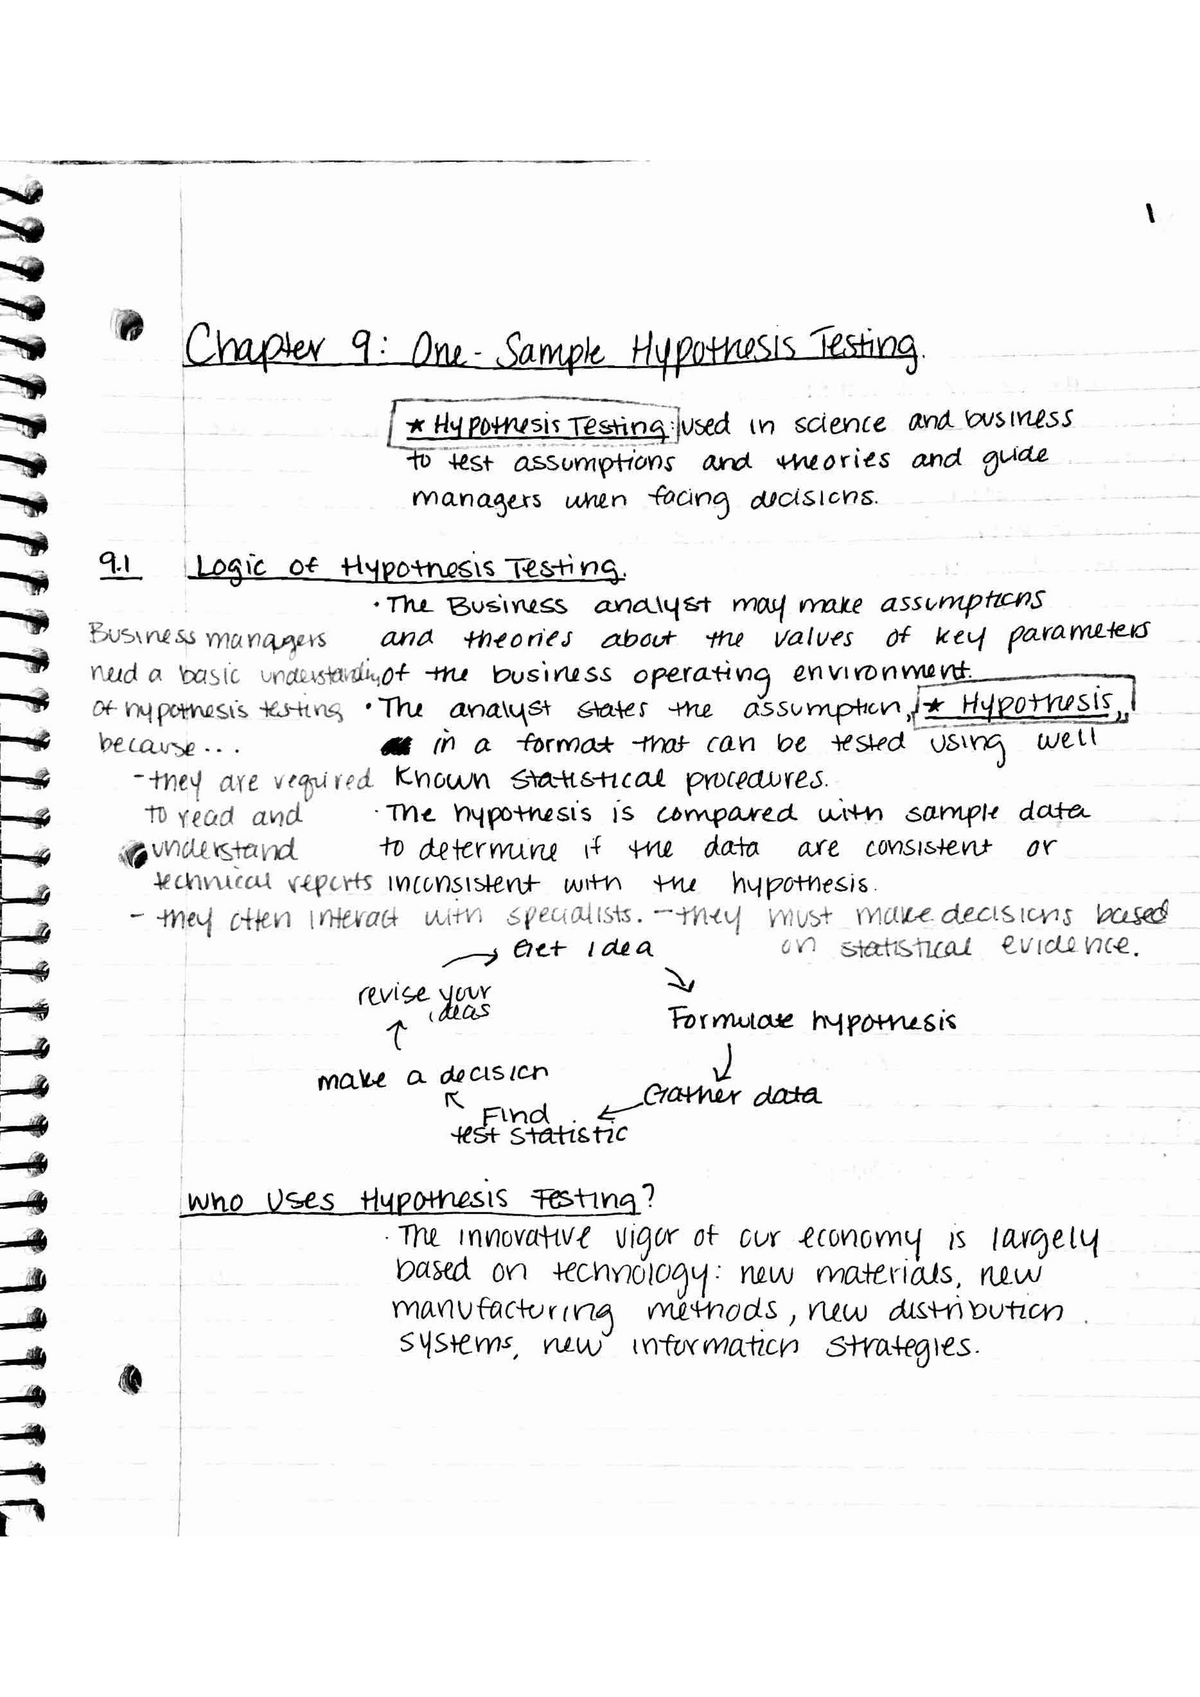 1
Chapter 9: One-Sample Hypothesis Testing.
★ Hypothesis Testing: used in science and business
to test assumptions and theories and guide
managers when facing decisions.
9.1 Logic of Hypothesis Testing.
• The Business analyst may make assumptions
and theories about the values of key parameters
of the business operating environment.
• The analyst states the assumption, ★ Hypothesis,
in a format that can be tested using well
known statistical procedures.
• The hypothesis is compared with sample data
to determine if the data are consistent or
inconsistent with the hypothesis.
Business managers
need a basic understanding
of hypothesis testing
because...
- they are required
to read and
understand
technical reports
- they often interact with specialists. - they must make decisions based
on statistical evidence.
→ Get idea
↘
Formulate hypothesis
↓
Gather data
←
Find
test statistic
↖
make a decision
↑
revise your
ideas
Who Uses Hypothesis Testing?
• The innovative vigor of our economy is largely
based on technology: new materials, new
manufacturing methods, new distribution
systems, new information strategies.